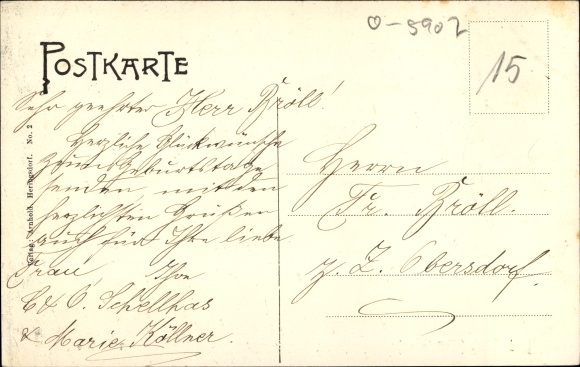 O-5902
POSTKARTE
15
Sehr geehrter Herr Bröll!
Herzliche Glückwünsche
zum Geburtstage
senden mit den
herzlichsten Grüßen
auch für Ihre liebe
Frau Ihre
C & O. Schellhas
& Marie Köllner.
Verlag: Arnhold, Heringsdorf. No. 2
Herrn
Fr. Bröll.
z. Z. Obersdorf.